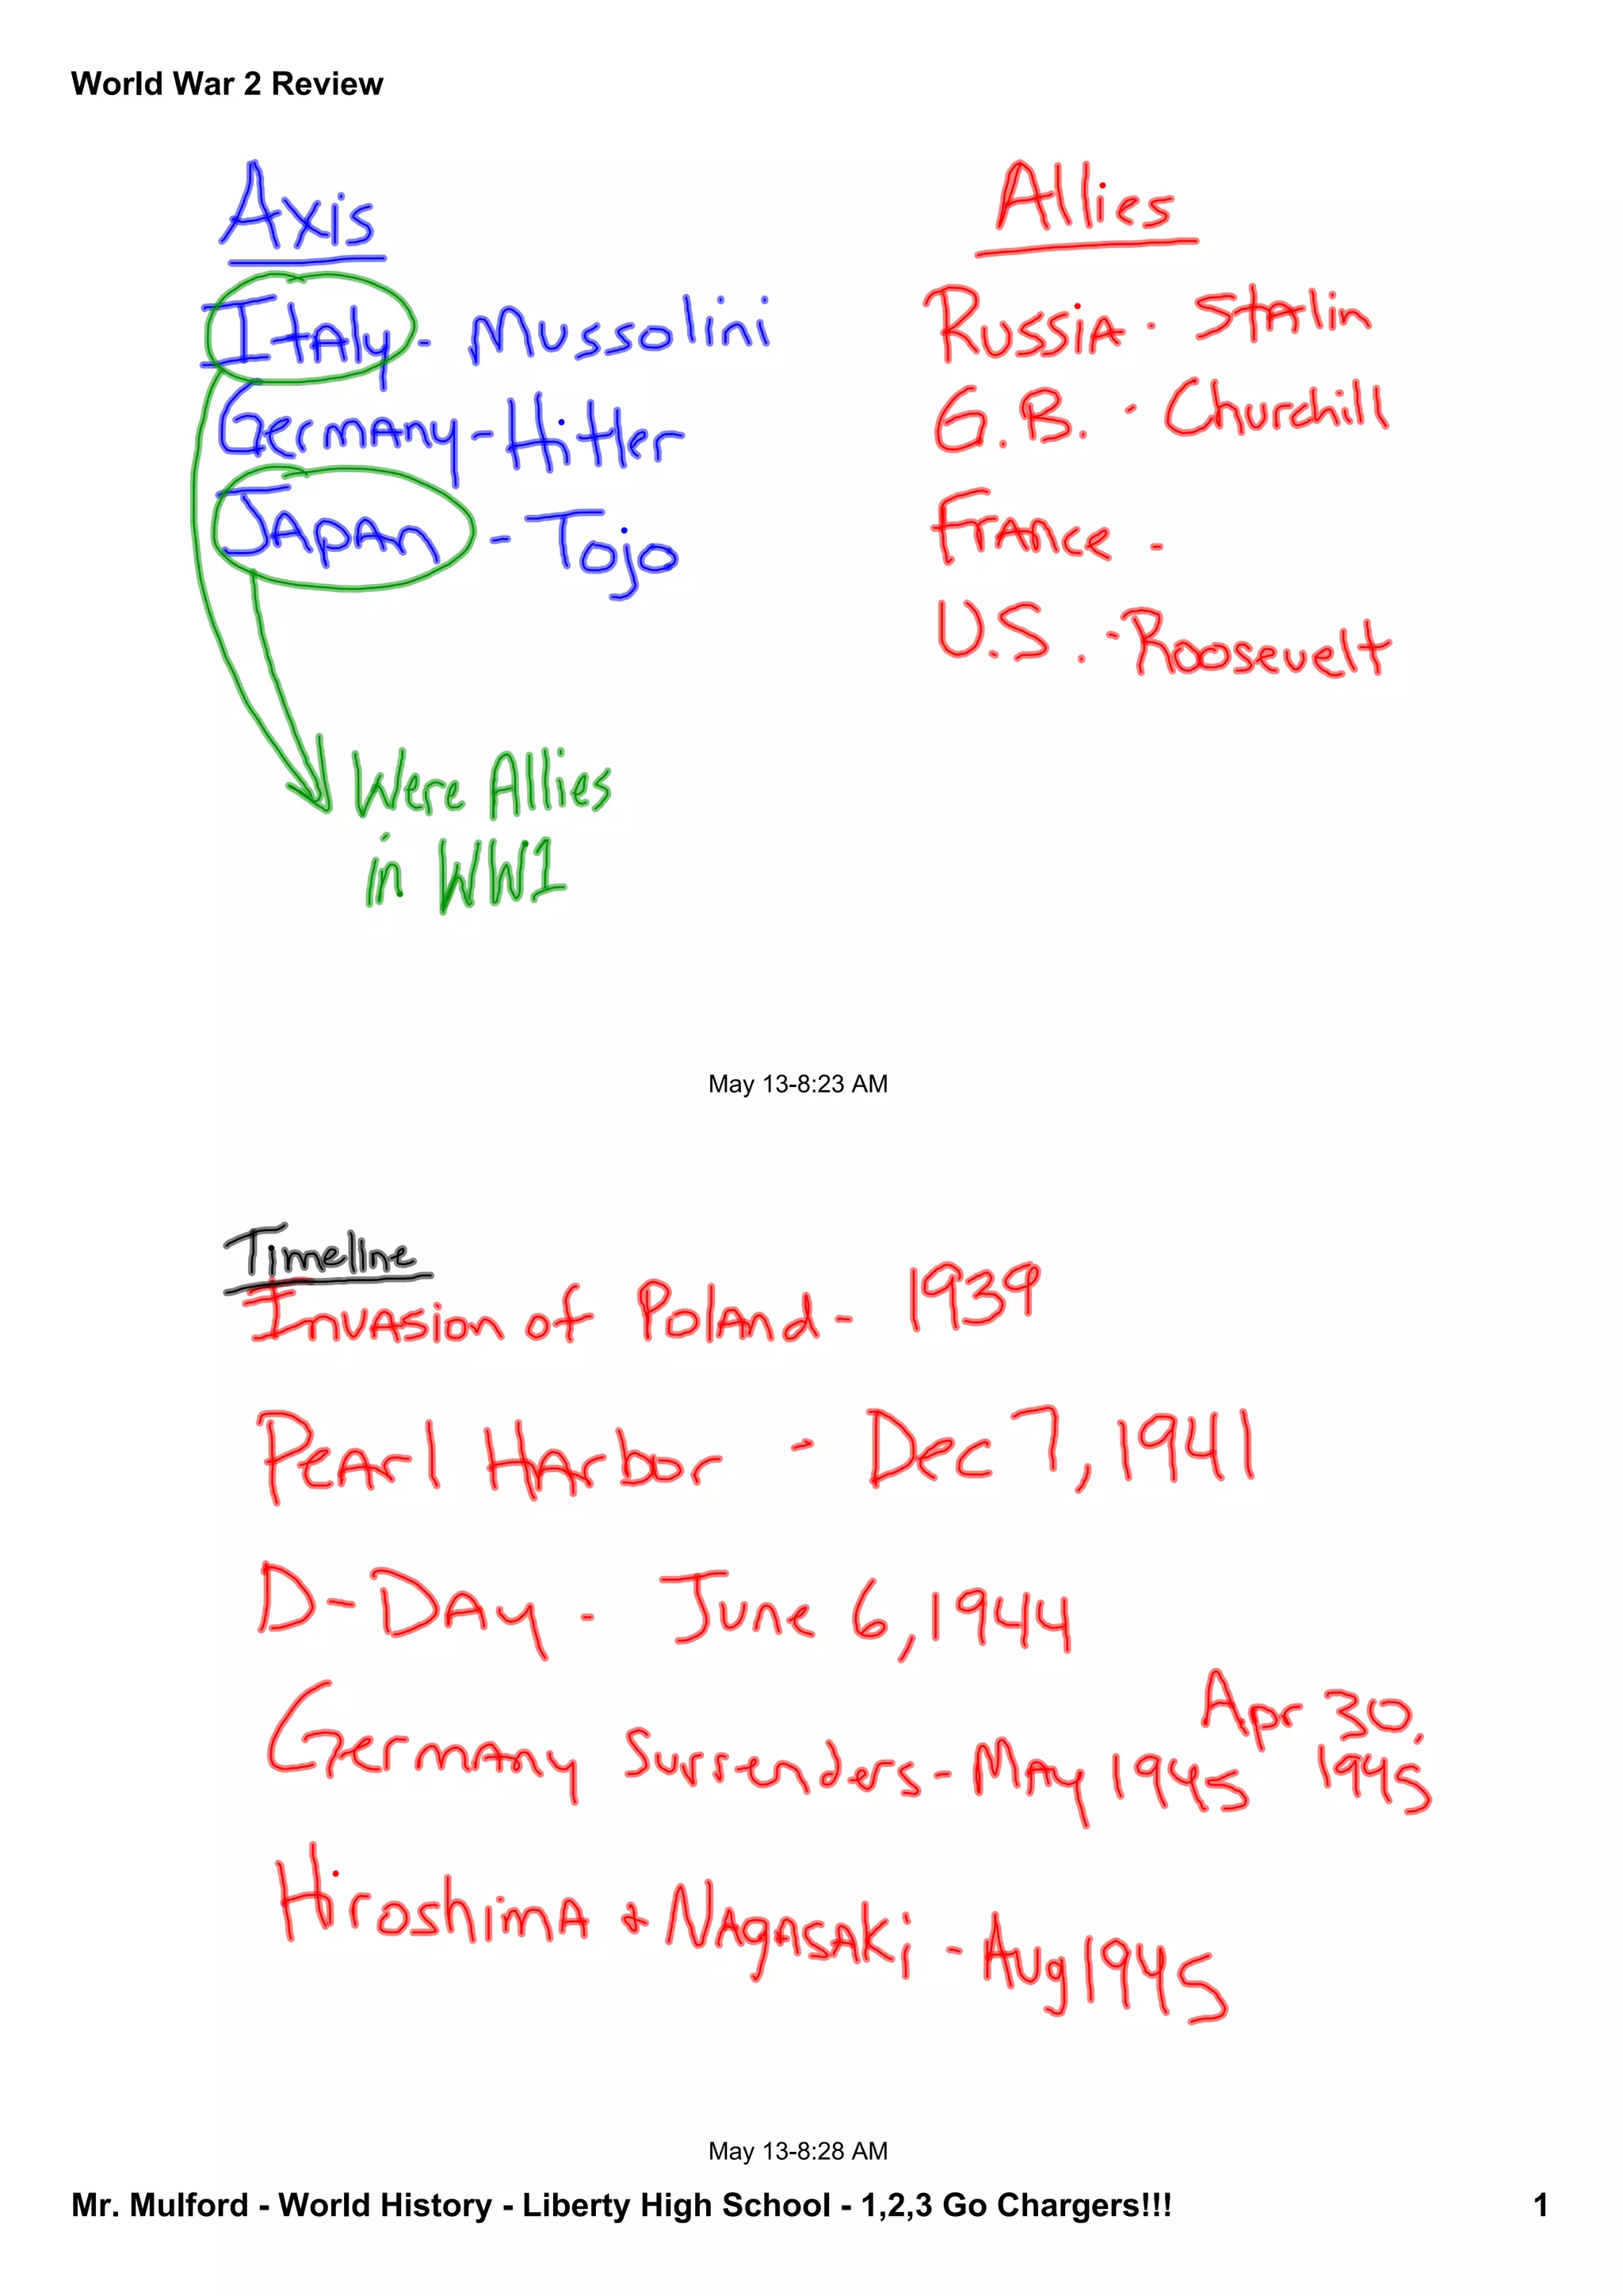 World War 2 Review
Axis
Italy - Mussolini
Germany - Hitler
Japan - Tojo
Were Allies
in WW1
Allies
Russia - Stalin
G.B. - Churchill
France -
U.S. - Roosevelt
May 13-8:23 AM
Timeline
Invasion of Poland - 1939
Pearl Harbor - Dec 7, 1941
D-Day - June 6, 1944
Germany Surrenders - May 1945
Apr 30,
1945
Hiroshima & Nagasaki - Aug 1945
May 13-8:28 AM
Mr. Mulford - World History - Liberty High School - 1,2,3 Go Chargers!!! 1